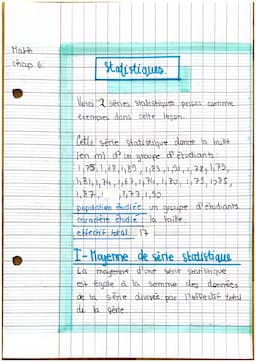 Math
chap 6.
Statistiques.
Voici 2 séries statistiques prises comme
exemples dans cette leçon.
Cette série statistique donne la taille
(en m) d'un groupe d'étudiants
1,75, 1,68, 1,89, 1,83, 1,91, 1,78, 1,79,
1,81, 1,74, 1,67, 1,74, 1,80, 1,75, 1,85,
1,87, 1,77, 1,90
population étudiée: un groupe d'étudiants
caractère étudié: la taille.
effectif total: 17
I- Moyenne de série statistique
La moyenne d'une série statistique
est égale à la somme des données
de la série divisée par l'effectif total
de la série.